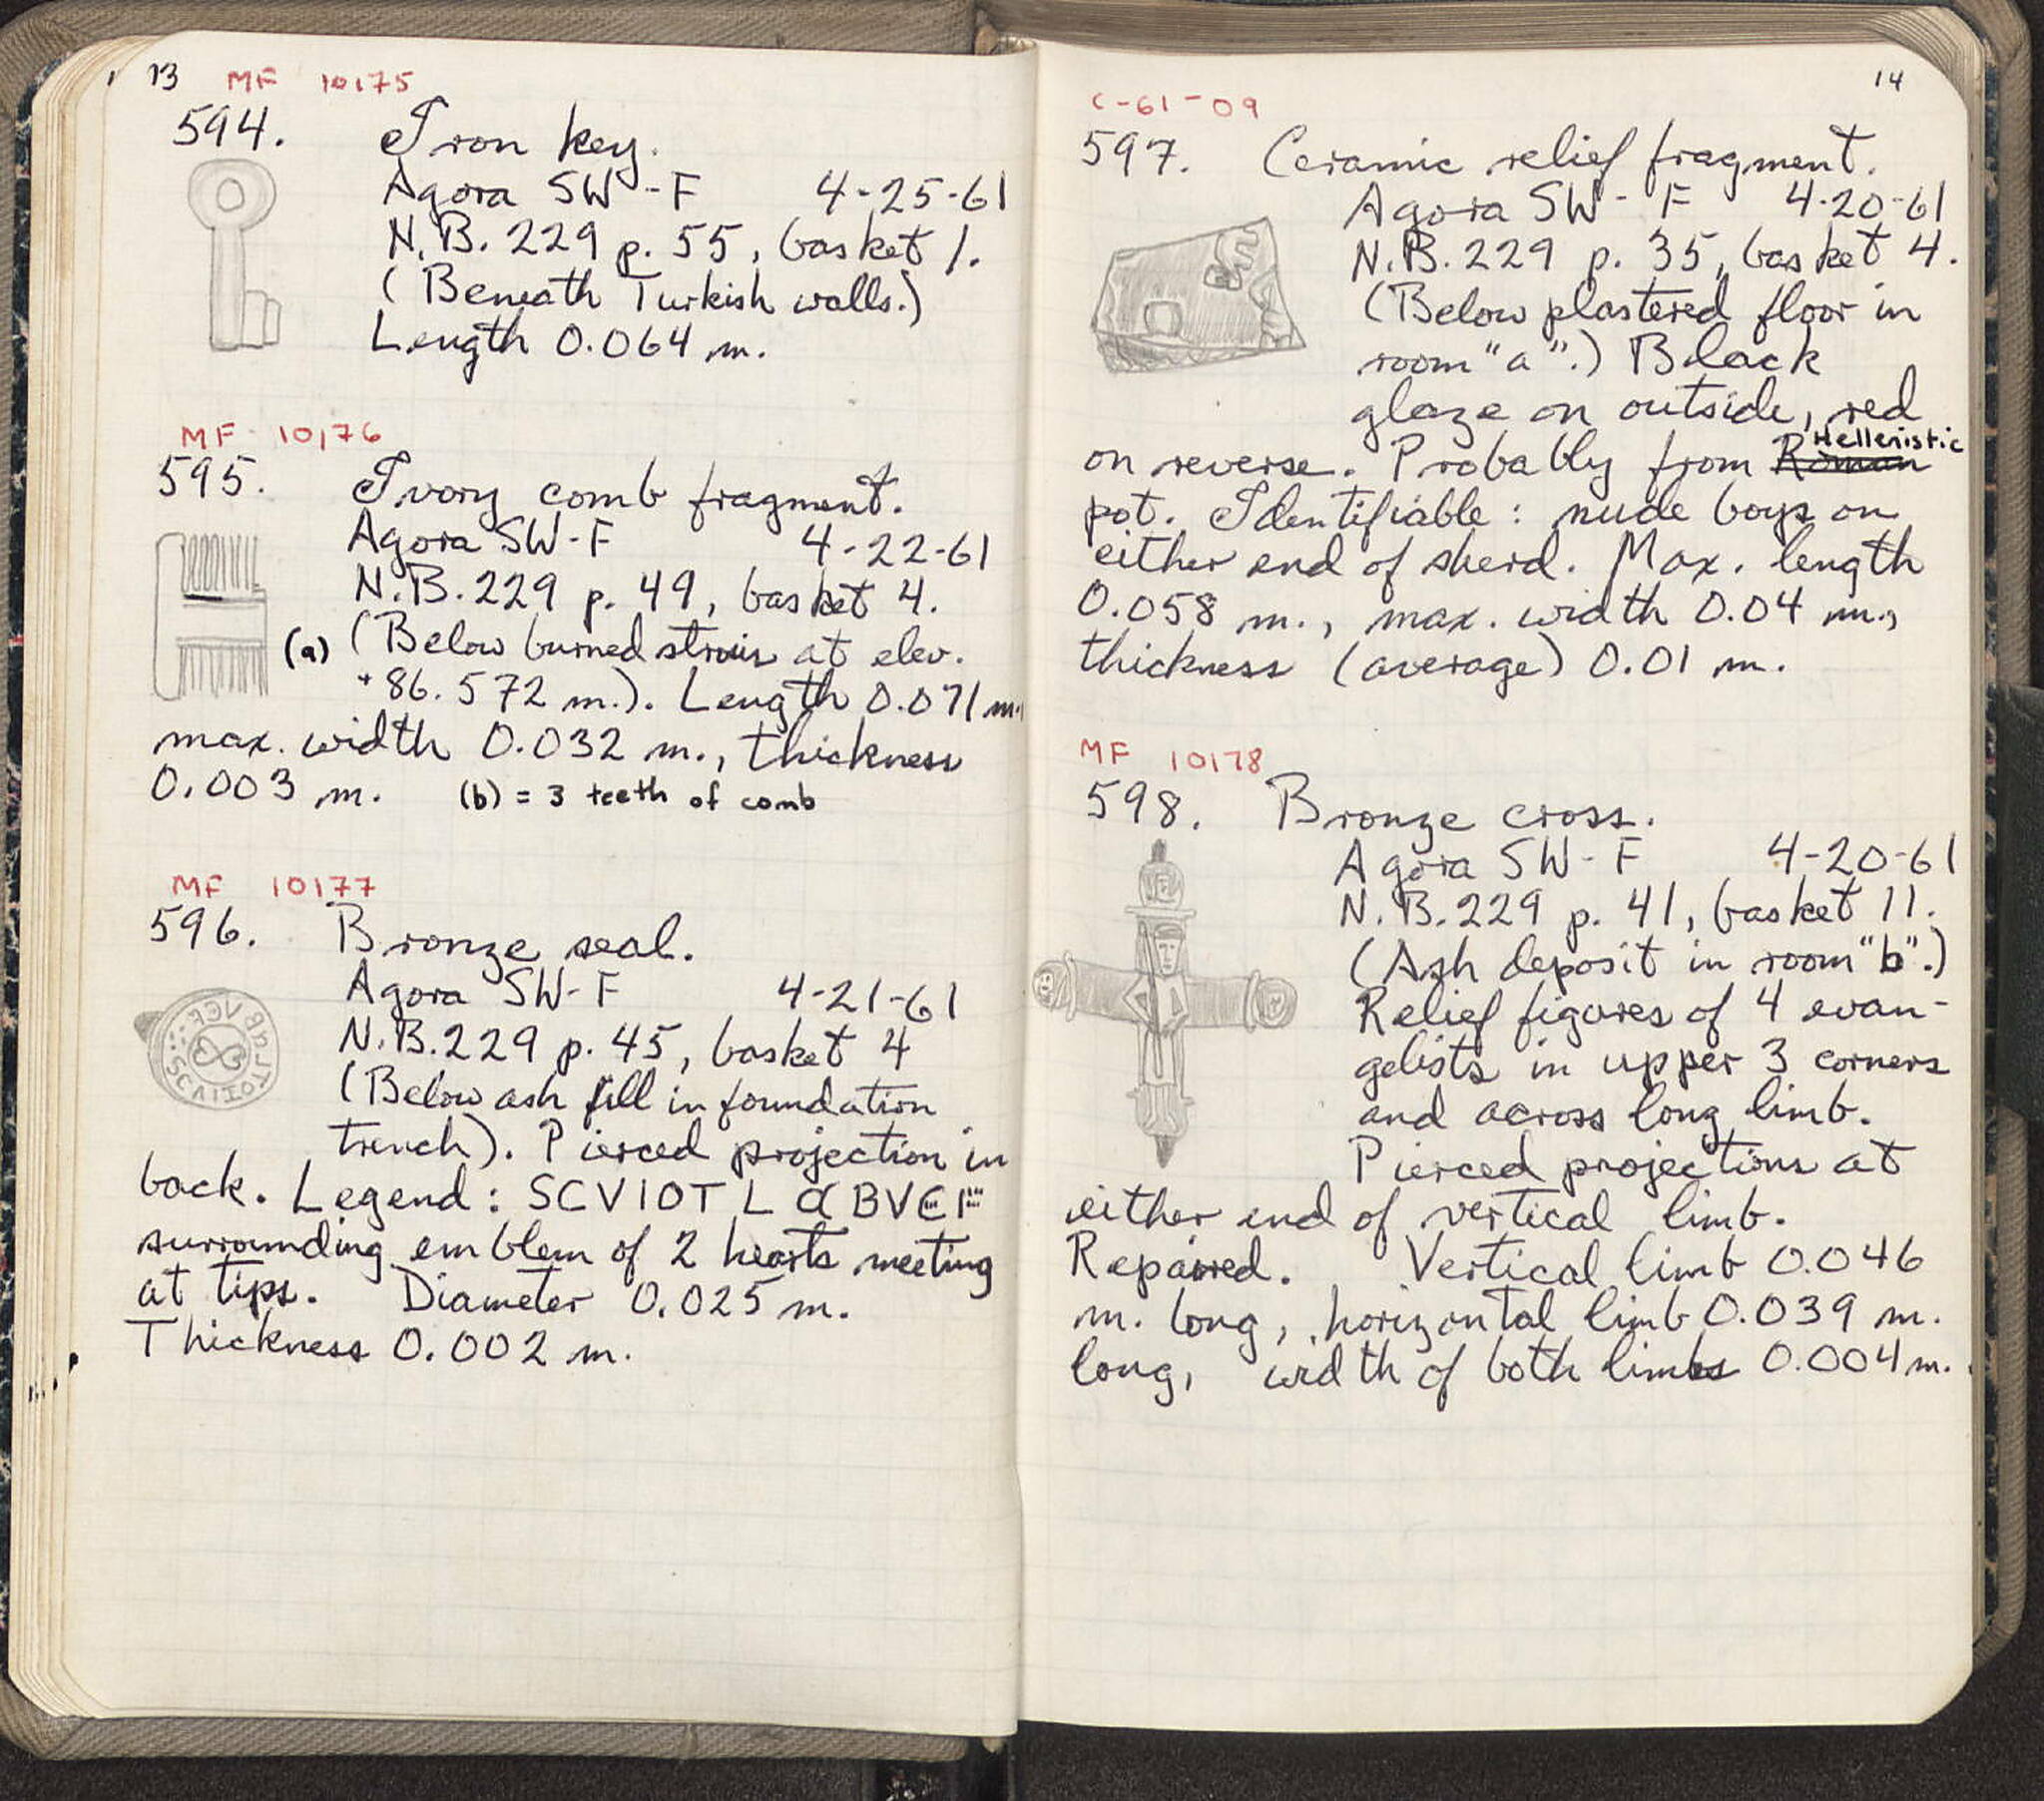 13 MF 10175
594. Iron key.
Agora SW-F 4-25-61
N.B. 229 p. 55, basket 1.
(Beneath Turkish walls.)
Length 0.064 m.
MF 10176
595. Ivory comb fragment.
Agora SW-F 4-22-61
N.B. 229 p. 49, basket 4.
(a) (Below burned at elev.
+86.572 m.). Length 0.071 m.,
max. width 0.032 m., thickness
0.003 m. (b) = 3 teeth of comb
MF 10177
596. Bronze seal.
Agora SW-F 4-21-61
N.B. 229 p. 45, basket 4
(Below ash fill in foundation
trench). Pierced projection in
back. Legend: SCVIOT L
surrounding emblem of 2 hearts meeting
at tips. Diameter 0.025 m.
Thickness 0.002 m.
14
C-61-09
597. Ceramic relief fragment.
Agora SW-F 4-20-61
N.B. 229 p. 35, basket 4.
(Below plastered floor in
room "a".) Black
glaze on outside, red
on reverse. Probably from Roman Hellenistic
pot. Identifiable: nude boys on
either end of sherd. Max. length
0.058 m., max. width 0.04 m.,
thickness (average) 0.01 m.
MF 10178
598. Bronze cross.
Agora SW-F 4-20-61
N.B. 229 p. 41, basket 11.
(Ash deposit in room "b".)
Relief figures of 4 evan-
gelists in upper 3 corners
and across long limb.
Pierced projections at
either end of vertical limb.
Repaired. Vertical limb 0.046
m. long, horizontal limb 0.039 m.
long, width of both limbs 0.004 m.